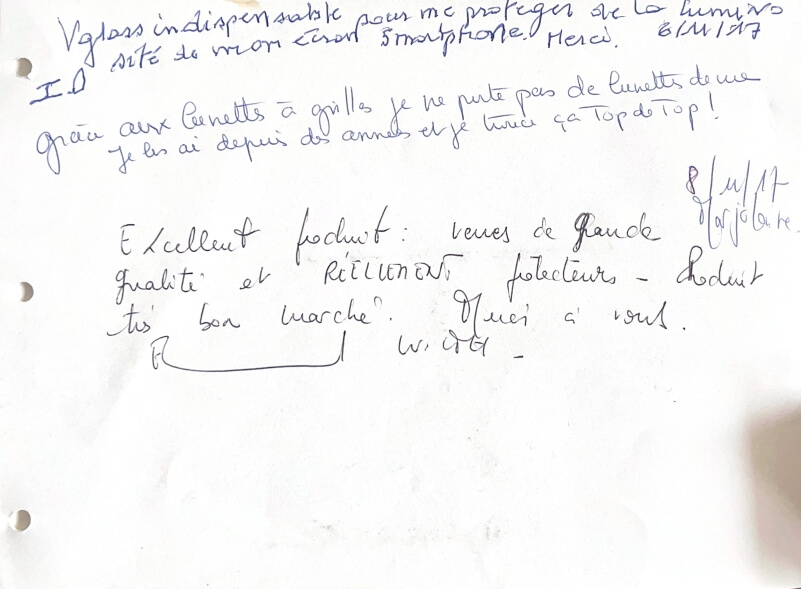 Vglass indispensable pour me proteger de la lumino
sité de mon écran Smartphone. Merci. 6/11/17
I.D
grâce aux lunettes à grilles je ne porte pas de lunettes de vue
je les ai depuis des années et je trouve ça Top de Top !
8/11/17
Marjolaine.
Excellent produit : verres de grande
qualité et RÉELLEMENT protecteurs - Produit
très bon marché. Merci à vous.